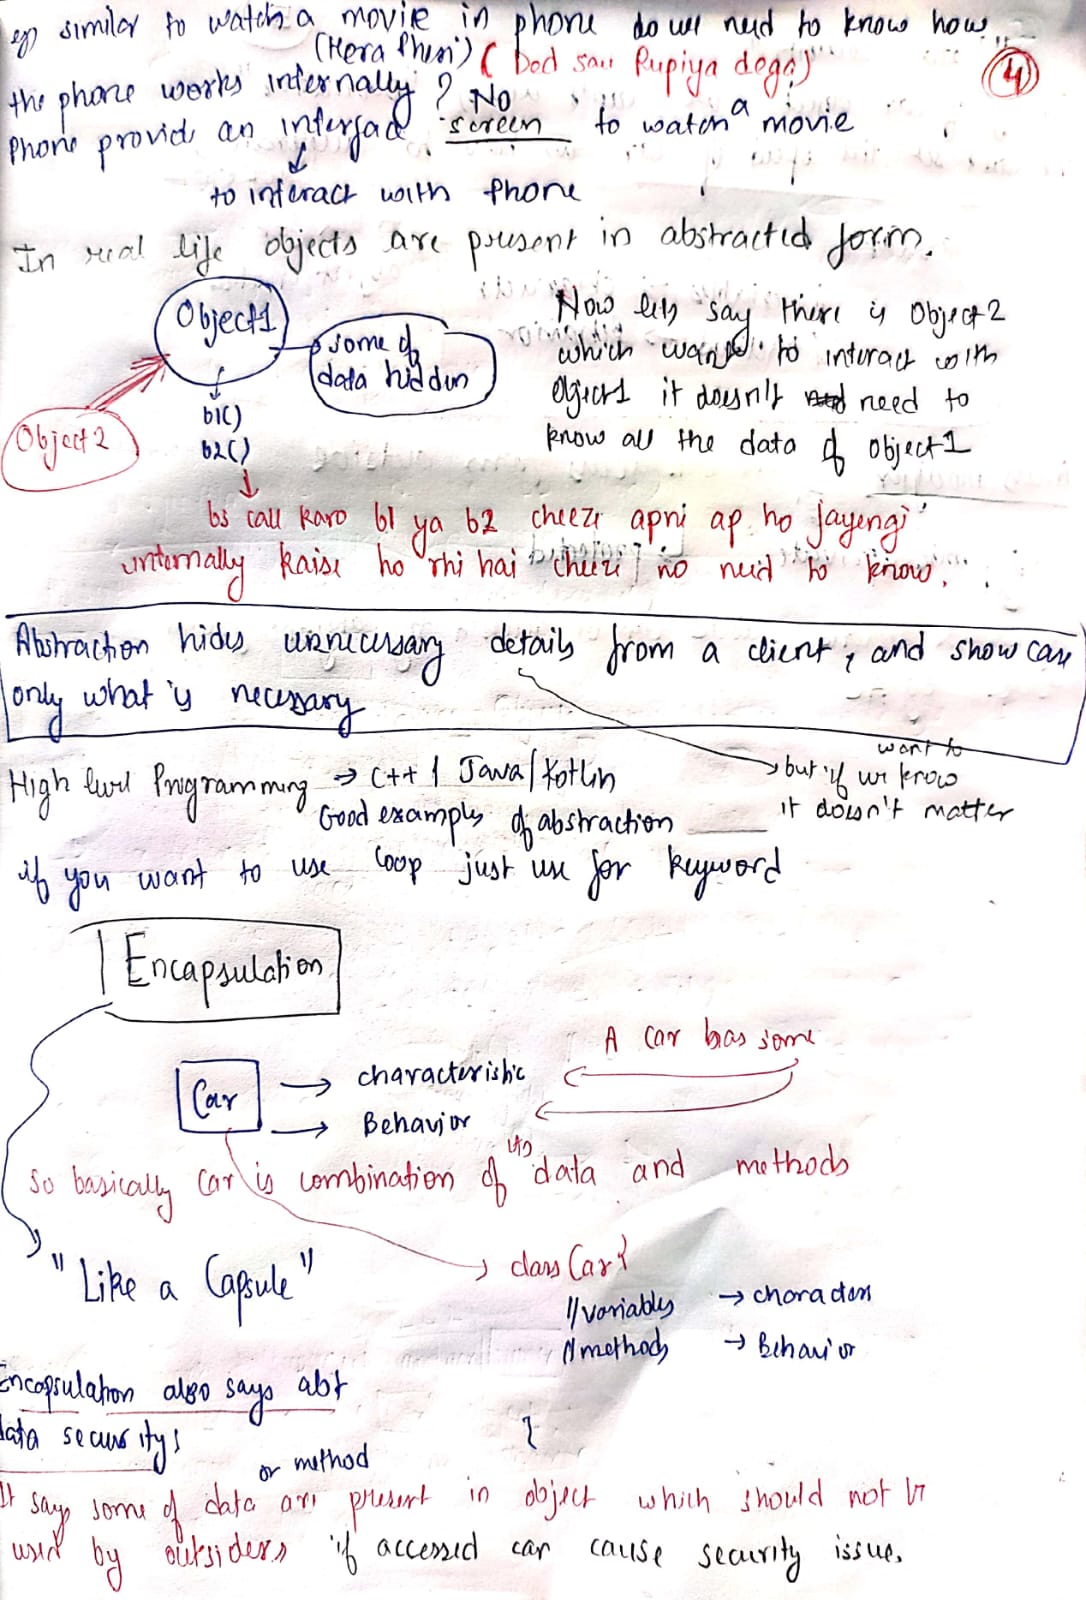 eg) similar to watch a movie in phone do we need to know how
(Hera Pheri) ( Ded sau Rupiya dega)
the phone works internally ? No
4
Phone provids an interface screen to watch a movie
to interact with phone
In real life objects are present in abstracted form.
Object1
some of
data hidden
b1()
b2()
Object2
Now lets say there is Object2
which wants to interact with
Object1 it doesn't need to
know all the data of object1
bs call karo b1 ya b2 cheeze apni ap ho jayengi
internally kaise ho rhi hai cheeze no need to know.
Abstraction hides unnecessary details from a client, and showcase
only what is necessary
want to
but if we know
it doesn't matter
High level Programming → C++ / Java/Kotlin
Good examples of abstraction
if you want to use loop just use for keyword
Encapsulation
A car has some
Car → characteristic
→ Behavior
So basically car is combination of its data and methods
"Like a Capsule"
class Car{
//variables → characters
//methods → Behavior
}
Encapsulation also says abt
data security:
or method
It says some of data are present in object which should not be
used by outsiders if accessed can cause security issue.